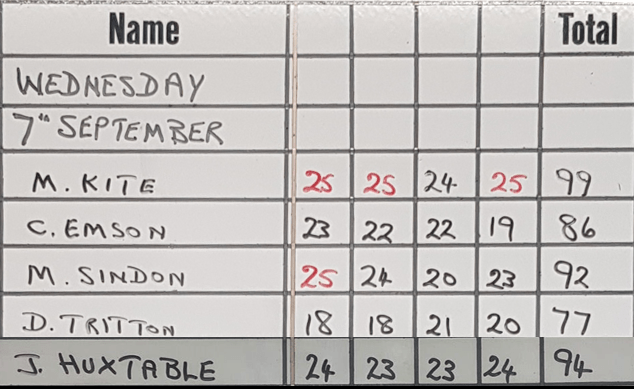 Name Total
WEDNESDAY
7TH SEPTEMBER
M. KITE 25 25 24 25 99
C. EMSON 23 22 22 19 86
M. SINDON 25 24 20 23 92
D. TRITTON 18 18 21 20 77
J. HUXTABLE 24 23 23 24 94